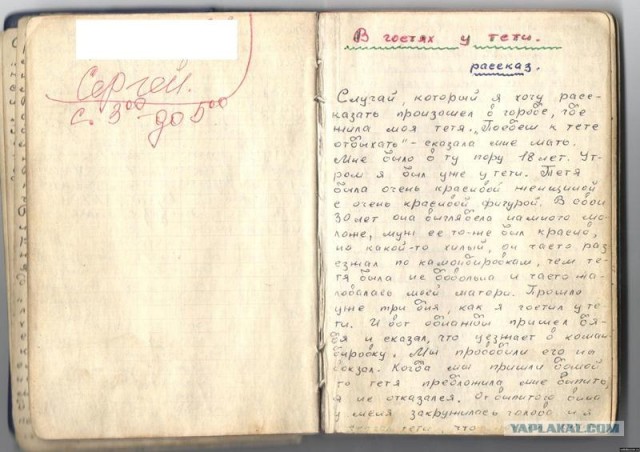 Сергей.
с 3⁰⁰ до 5⁰⁰
В гостях у тети.
рассказ.
Случай, который я хочу расс-
казать произошел в городе, где
жила моя тетя. "Поедем к тете
отдыхать" - сказала мне мать.
Мне было в ту пору 18 лет. Ут-
ром я был уже у тети. Тетя
была очень красивой женщиной
с очень красивой фигурой. В свои
30 лет она выглядела намного мо-
ложе, муж ее то-же был красив,
но какой-то хилый, он часто раз
езжал по командировкам, чем те-
тя была не довольна и часто жа-
ловалась моей матери. Прошло
уже три дня, как я гостил у те-
ти. И вот однажды пришел дя-
дя и сказал, что уезжает в коман-
дировку. Мы проводили его на
вокзал. Когда мы пришли домой
то тетя предложила мне выпить,
я не отказался. От выпитого вина
у меня закружилась голова и я
тети, что
YAPLAKAL.COM